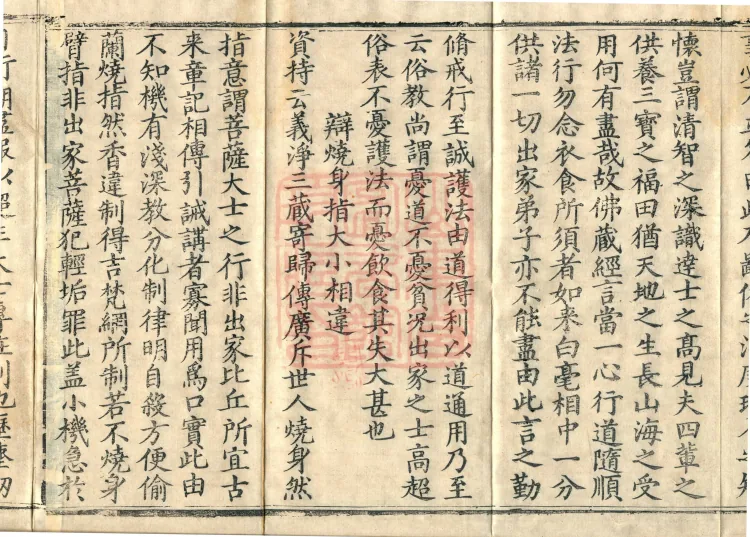 懷豈謂清智之深識達士之髙見夫四輩之
供養三寶之福田猶天地之生長山海之受
用何有盡㢤故佛藏經言當一心行道隨順
法行勿念衣食所須者如来白毫相中一分
供諸一切出家弟子亦不能盡由此言之勤
脩戒行至誠護法由道得利以道通用乃至
云俗教尚謂憂道不憂貧况出家之士高超
俗表不憂護法而憂飲食其失大甚也
辯燒身指大小相違
資持云義淨三藏寄歸傳廣斥世人燒身然
指意謂菩薩大士之行非出家比丘所宜古
来章記相傳引誡講者寡聞用爲口實此由
不知機有淺深教分化制律明自殺方便偷
蘭燒指然香違制得吉梵網所制若不燒身
臂指非出家菩薩犯輕垢罪此盖小機急於